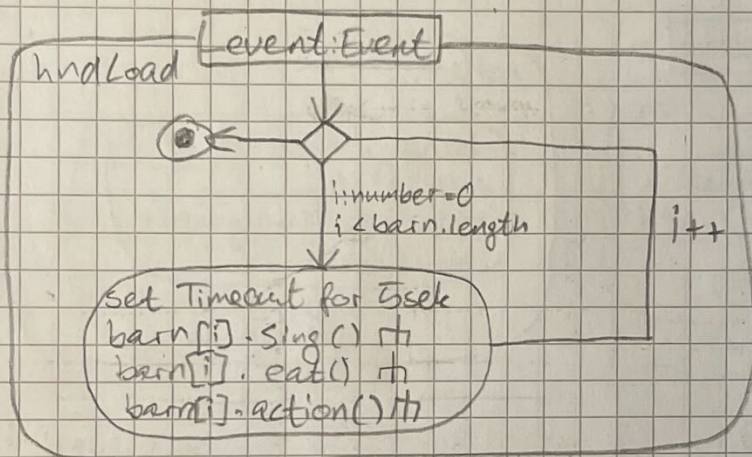 event:Event
hndLoad
i:number=0
i < barn.length
i++
set Timeout for 5sek
barn[i].sing()
barn[i].eat()
barn[i].action()